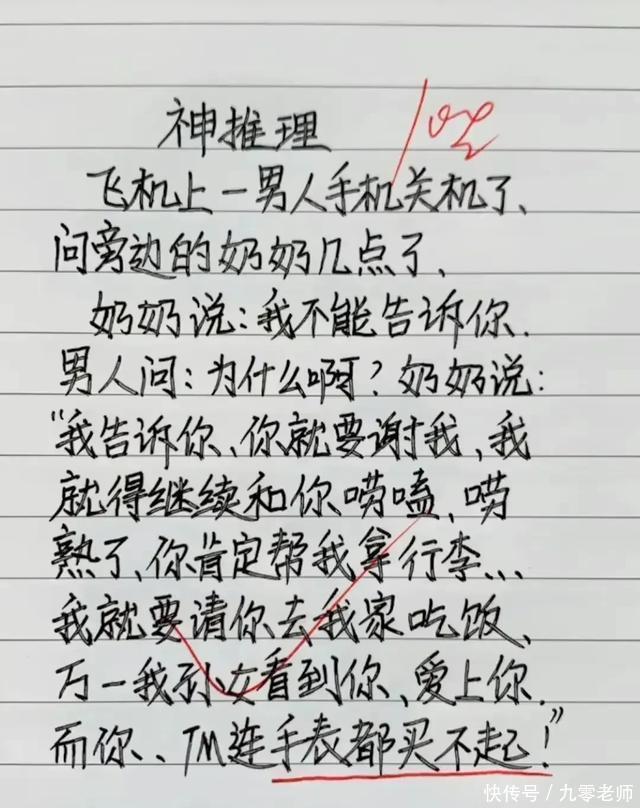 神推理
飞机上一男人手机关机了、
问旁边的奶奶几点了、
奶奶说:我不能告诉你.
男人问:为什么啊?奶奶说:
“我告诉你、你就要谢我,我
就得继续和你唠嗑、唠
熟了、你肯定帮我拿行李...
我就要请你去我家吃饭、
万一我孙女看到你、爱上你.
而你、、TM连手表都买不起!”
快传号/九零老师